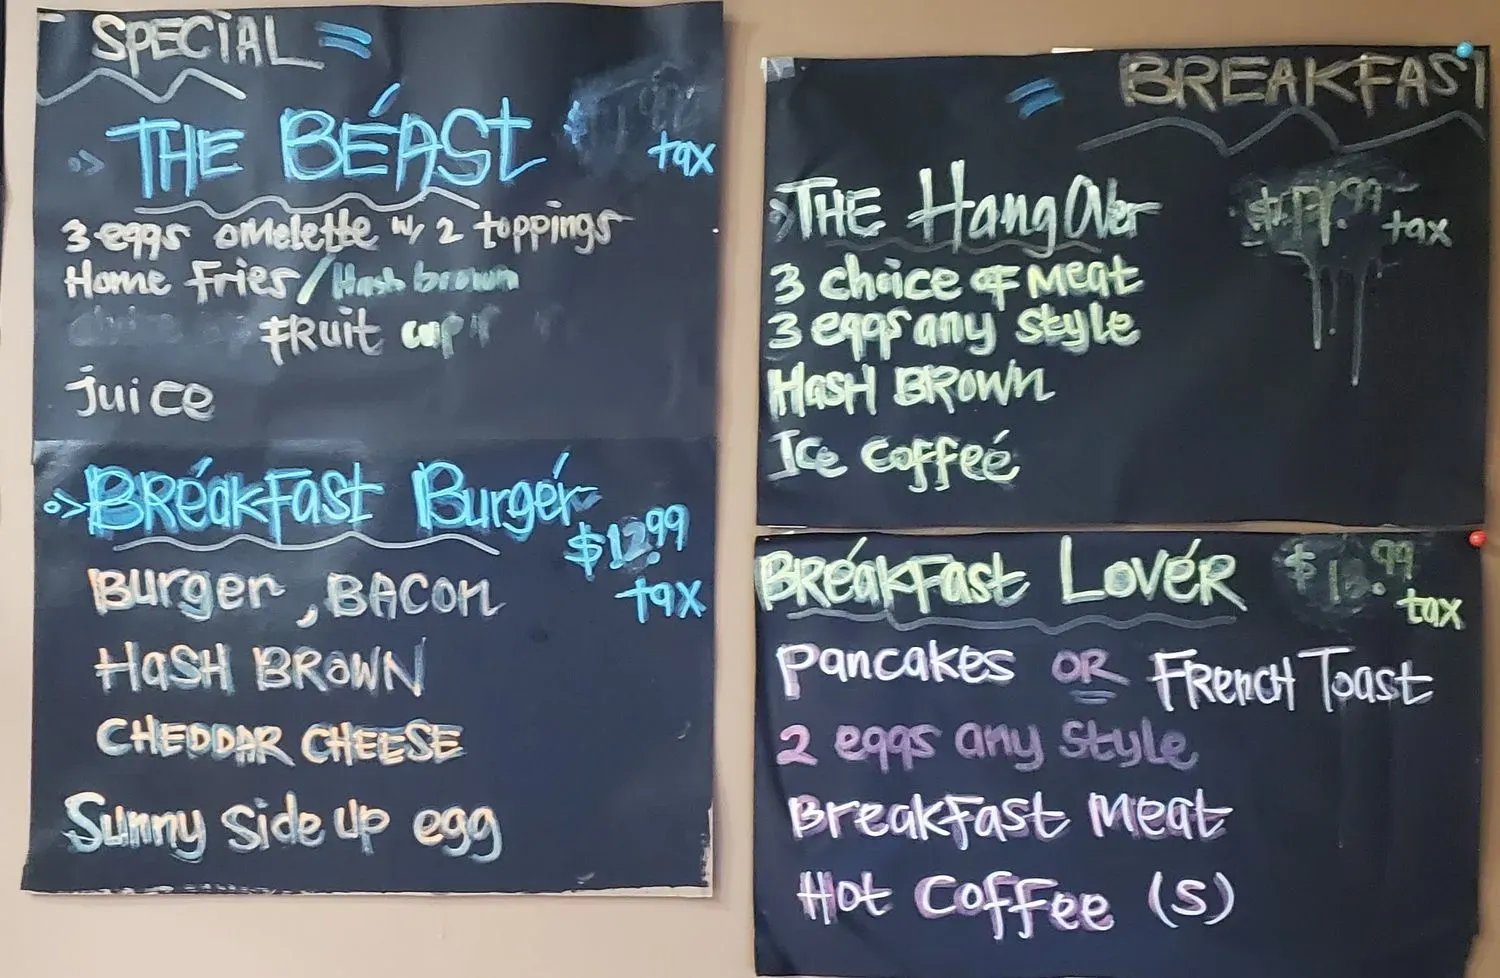 SPECIAL =
THE BÉAST
tax
3 eggs omelette w/ 2 toppings
Home fries / Hash brown
FRuit cup
Juice
BRéakFast Burgér
$12.99
tax
Burger, BACON
HaSH BROWN
CHEDDAR CHEESE
Sunny Side up egg
= BREAKFAST
THE HangOver
.99 tax
3 choice of Meat
3 eggs any style
HasH BROWN
Ice coffeé
BRéakFast LOVéR
tax
Pancakes OR FRench Toast
2 eggs any style
BreakFast Meat
Hot Coffee (S)